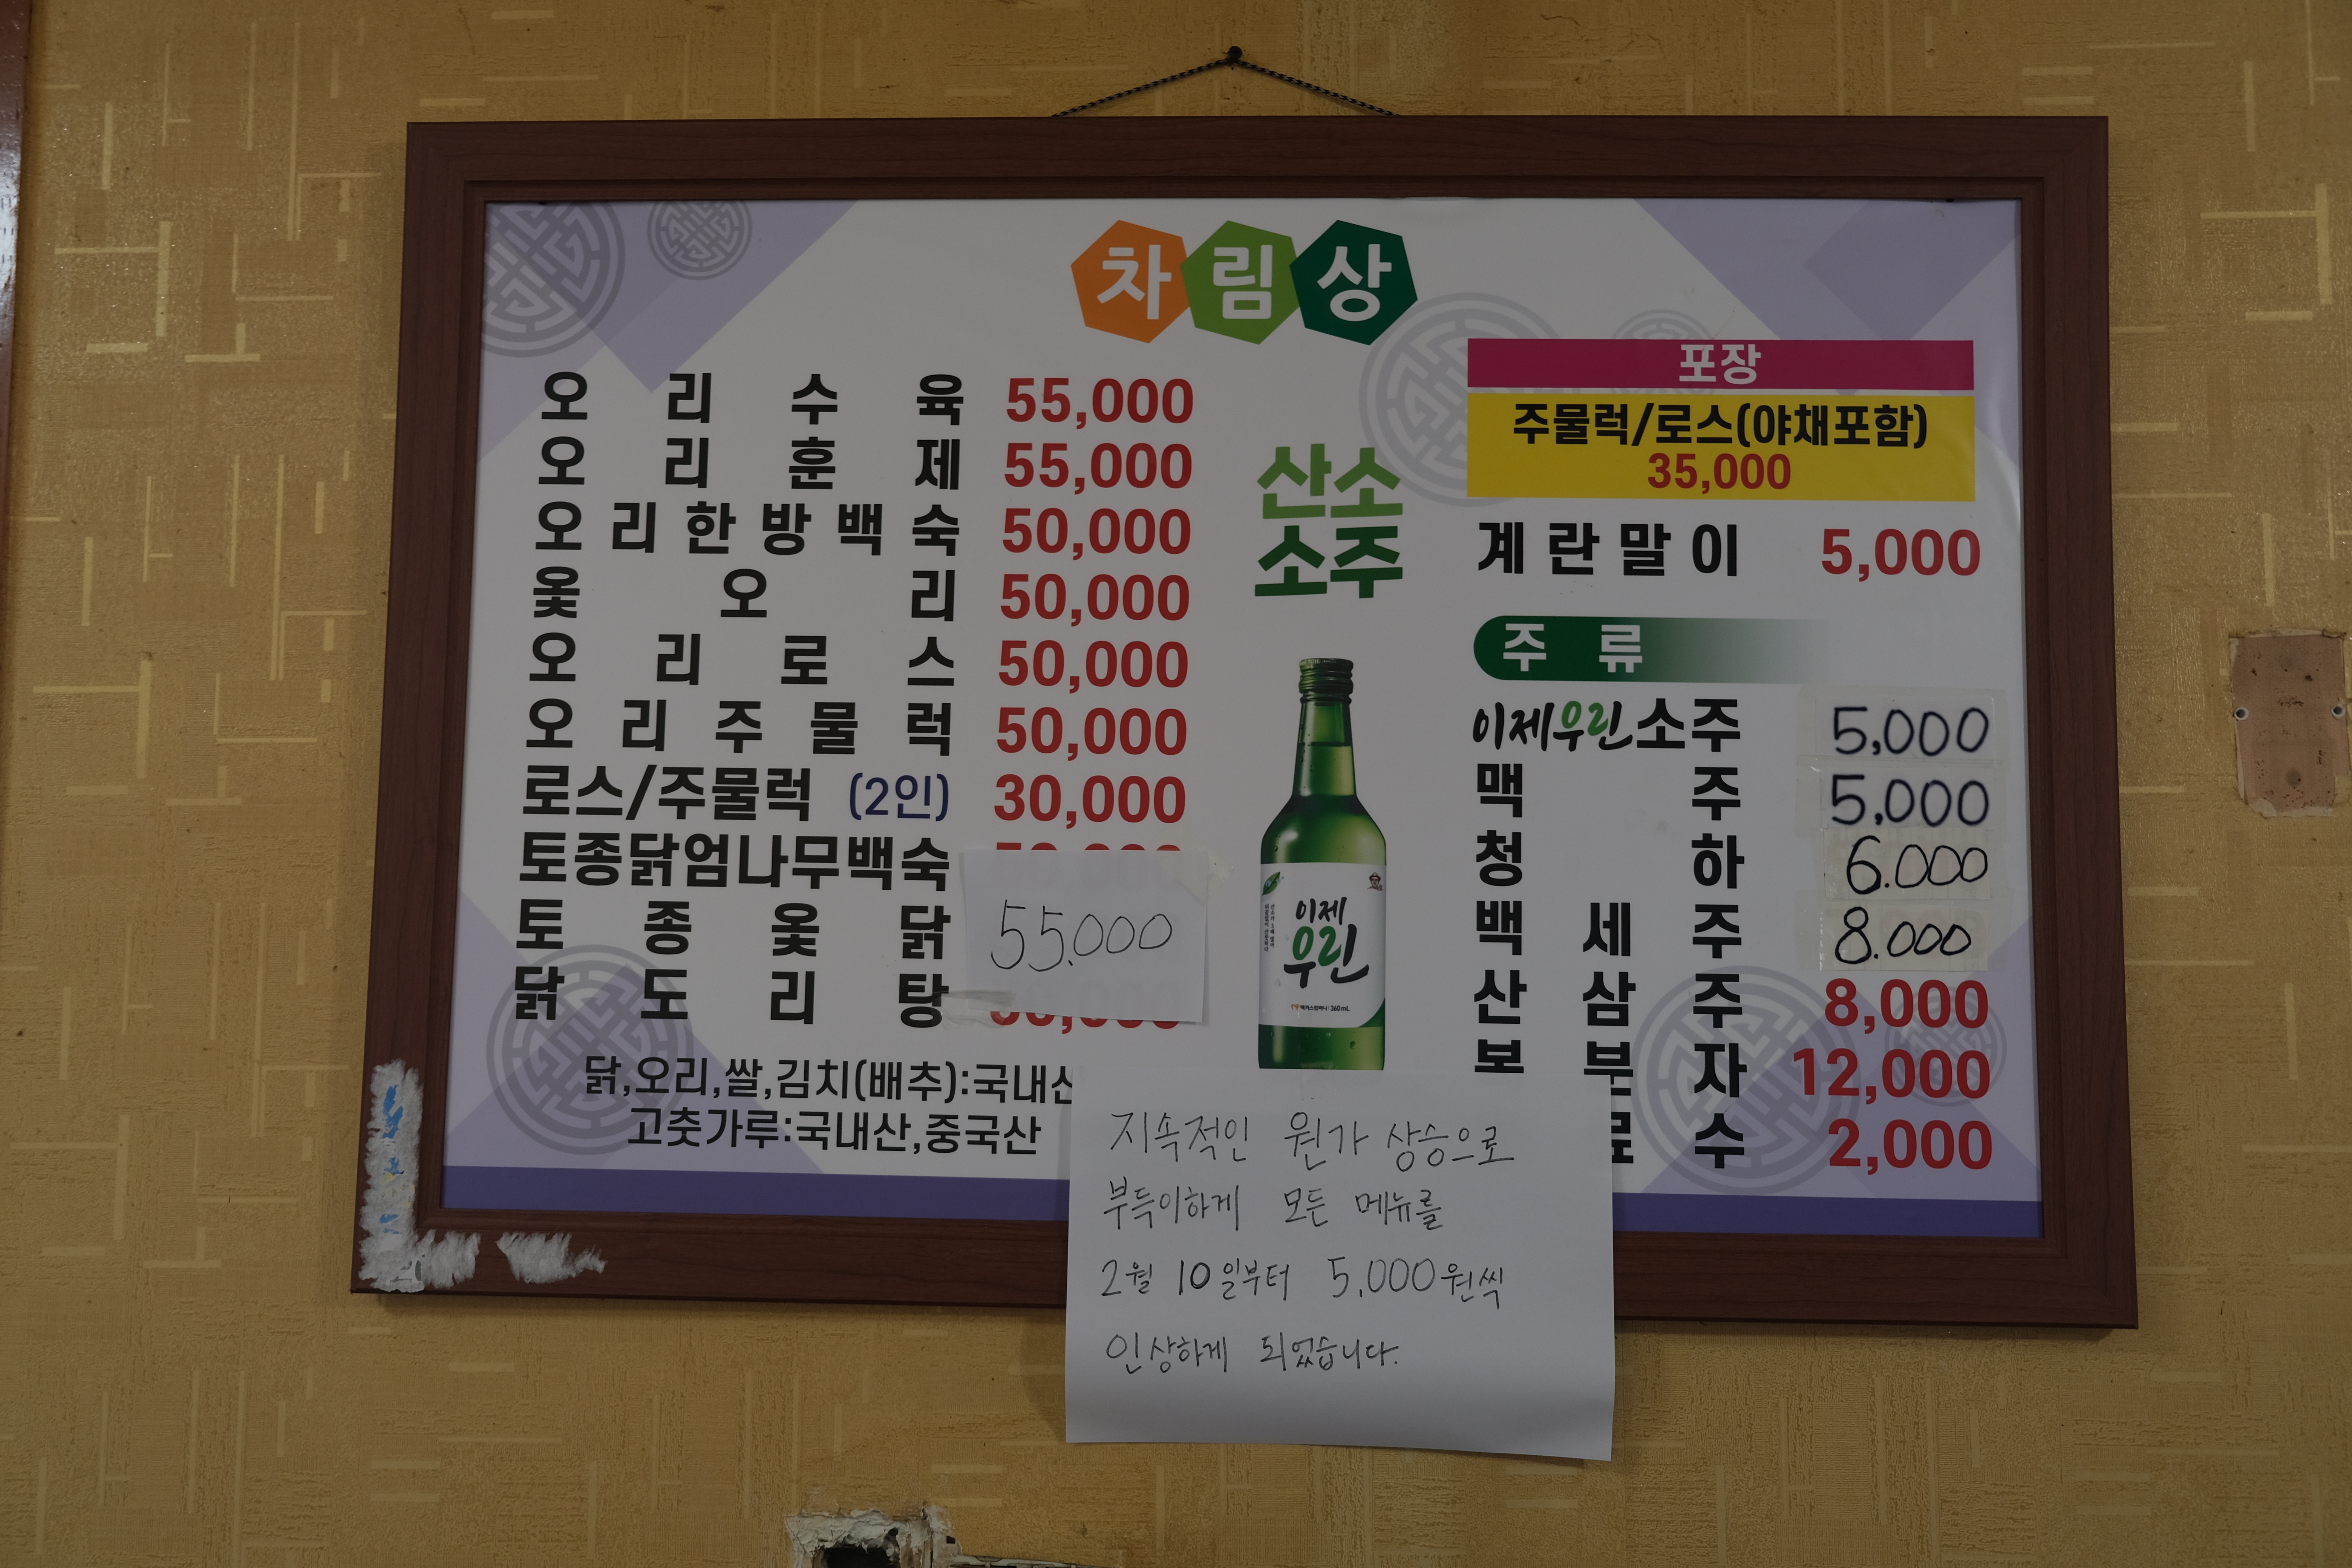 차림상
오리수육 55,000
오리훈제 55,000
오리한방백숙 50,000
옻오리 50,000
오리로스 50,000
오리주물럭 50,000
로스/주물럭 (2인) 30,000
토종닭엄나무백숙
토종옻닭 55.000
닭도리탕
닭,오리,쌀,김치(배추):국내산
고춧가루:국내산,중국산
산소
소주
이제
우린
포장
주물럭/로스(야채포함)
35,000
계란말이 5,000
주류
이제우린소주 5,000
맥주 5,000
청하 6.000
백세주 8.000
산삼주 8,000
부자 12,000
수 2,000
지속적인 원가 상승으로
부득이하게 모든 메뉴를
2월 10일부터 5.000원씩
인상하게 되었습니다.